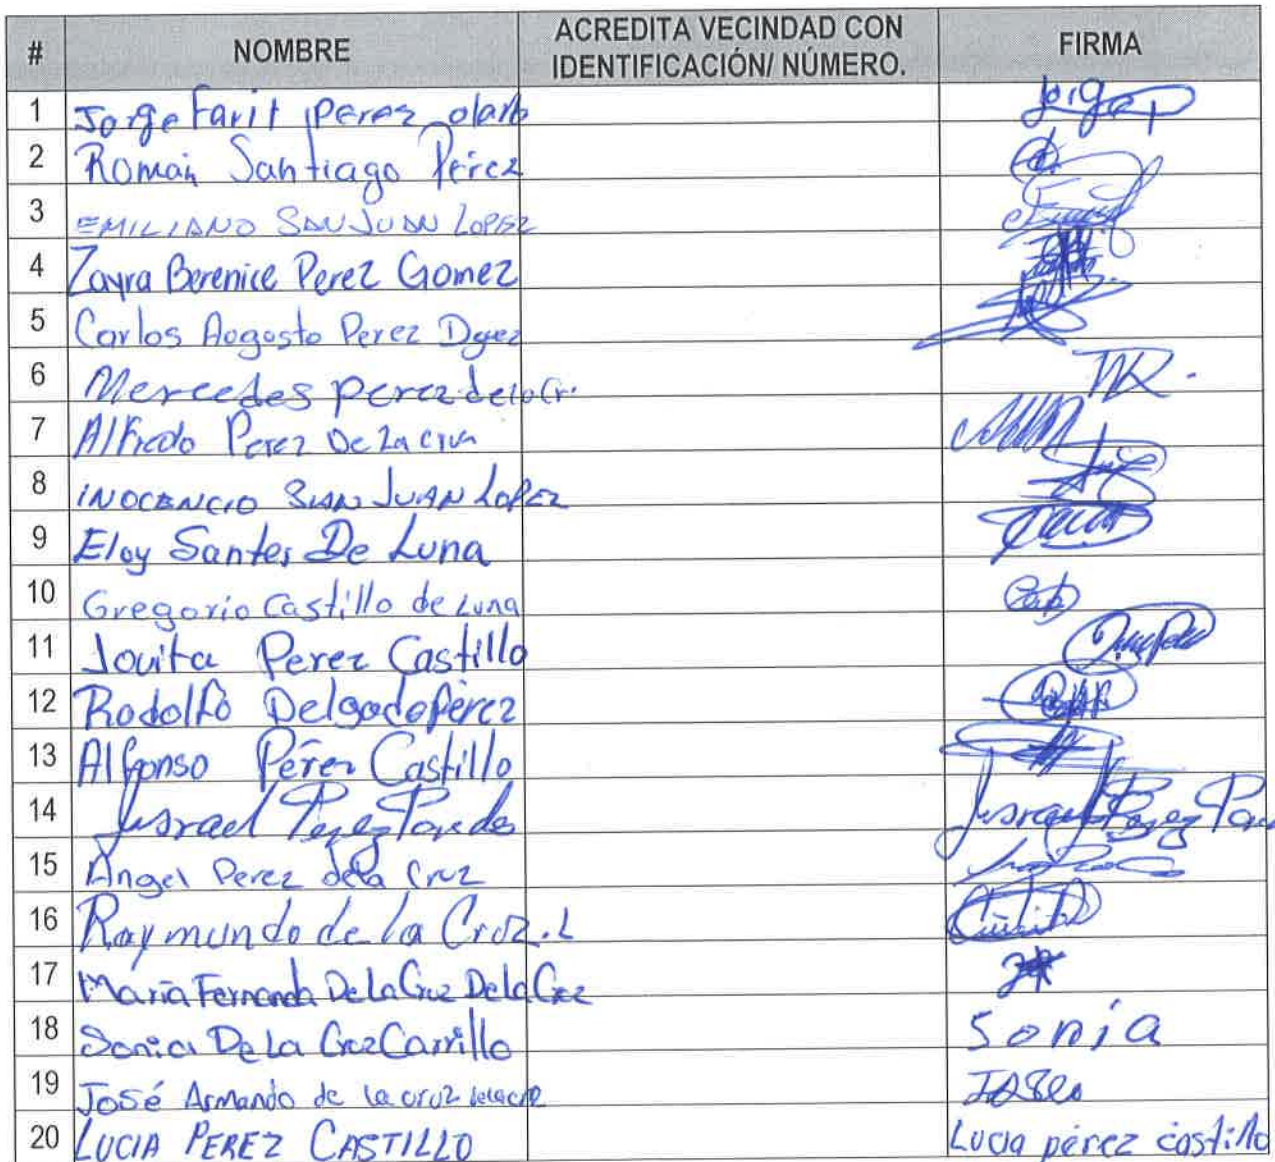 # NOMBRE ACREDITA VECINDAD CON IDENTIFICACIÓN/ NÚMERO. FIRMA
1 Jorge Farit Perez olarte Jorge P
2 Román Santiago Pérez
3 EMILIANO SAN JUAN LOPEZ
4 Zayra Berenice Perez Gomez
5 Carlos Aogosto Perez
6 Mercedes perez de la Cr.
7 Alfredo Perez De La cruz
8 INOCENCIO SAN JUAN LOPEZ
9 Eloy Santes De Luna
10 Gregorio Castillo de Luna
11 Jovita Perez Castillo
12 Rodolfo Delgado Pérez
13 Alfonso Pérez Castillo
14 Jusrael Perez Paredes Jusrael Perez
15 Angel Perez de la Cruz
16 Raymundo de la Cruz. L
17 Maria Fernanda De La Cruz De La Cruz
18 Sonia De La Cruz Carrillo Sonia
19 José Armando de la cruz
20 LUCIA PEREZ CASTILLO Lucia pérez castillo